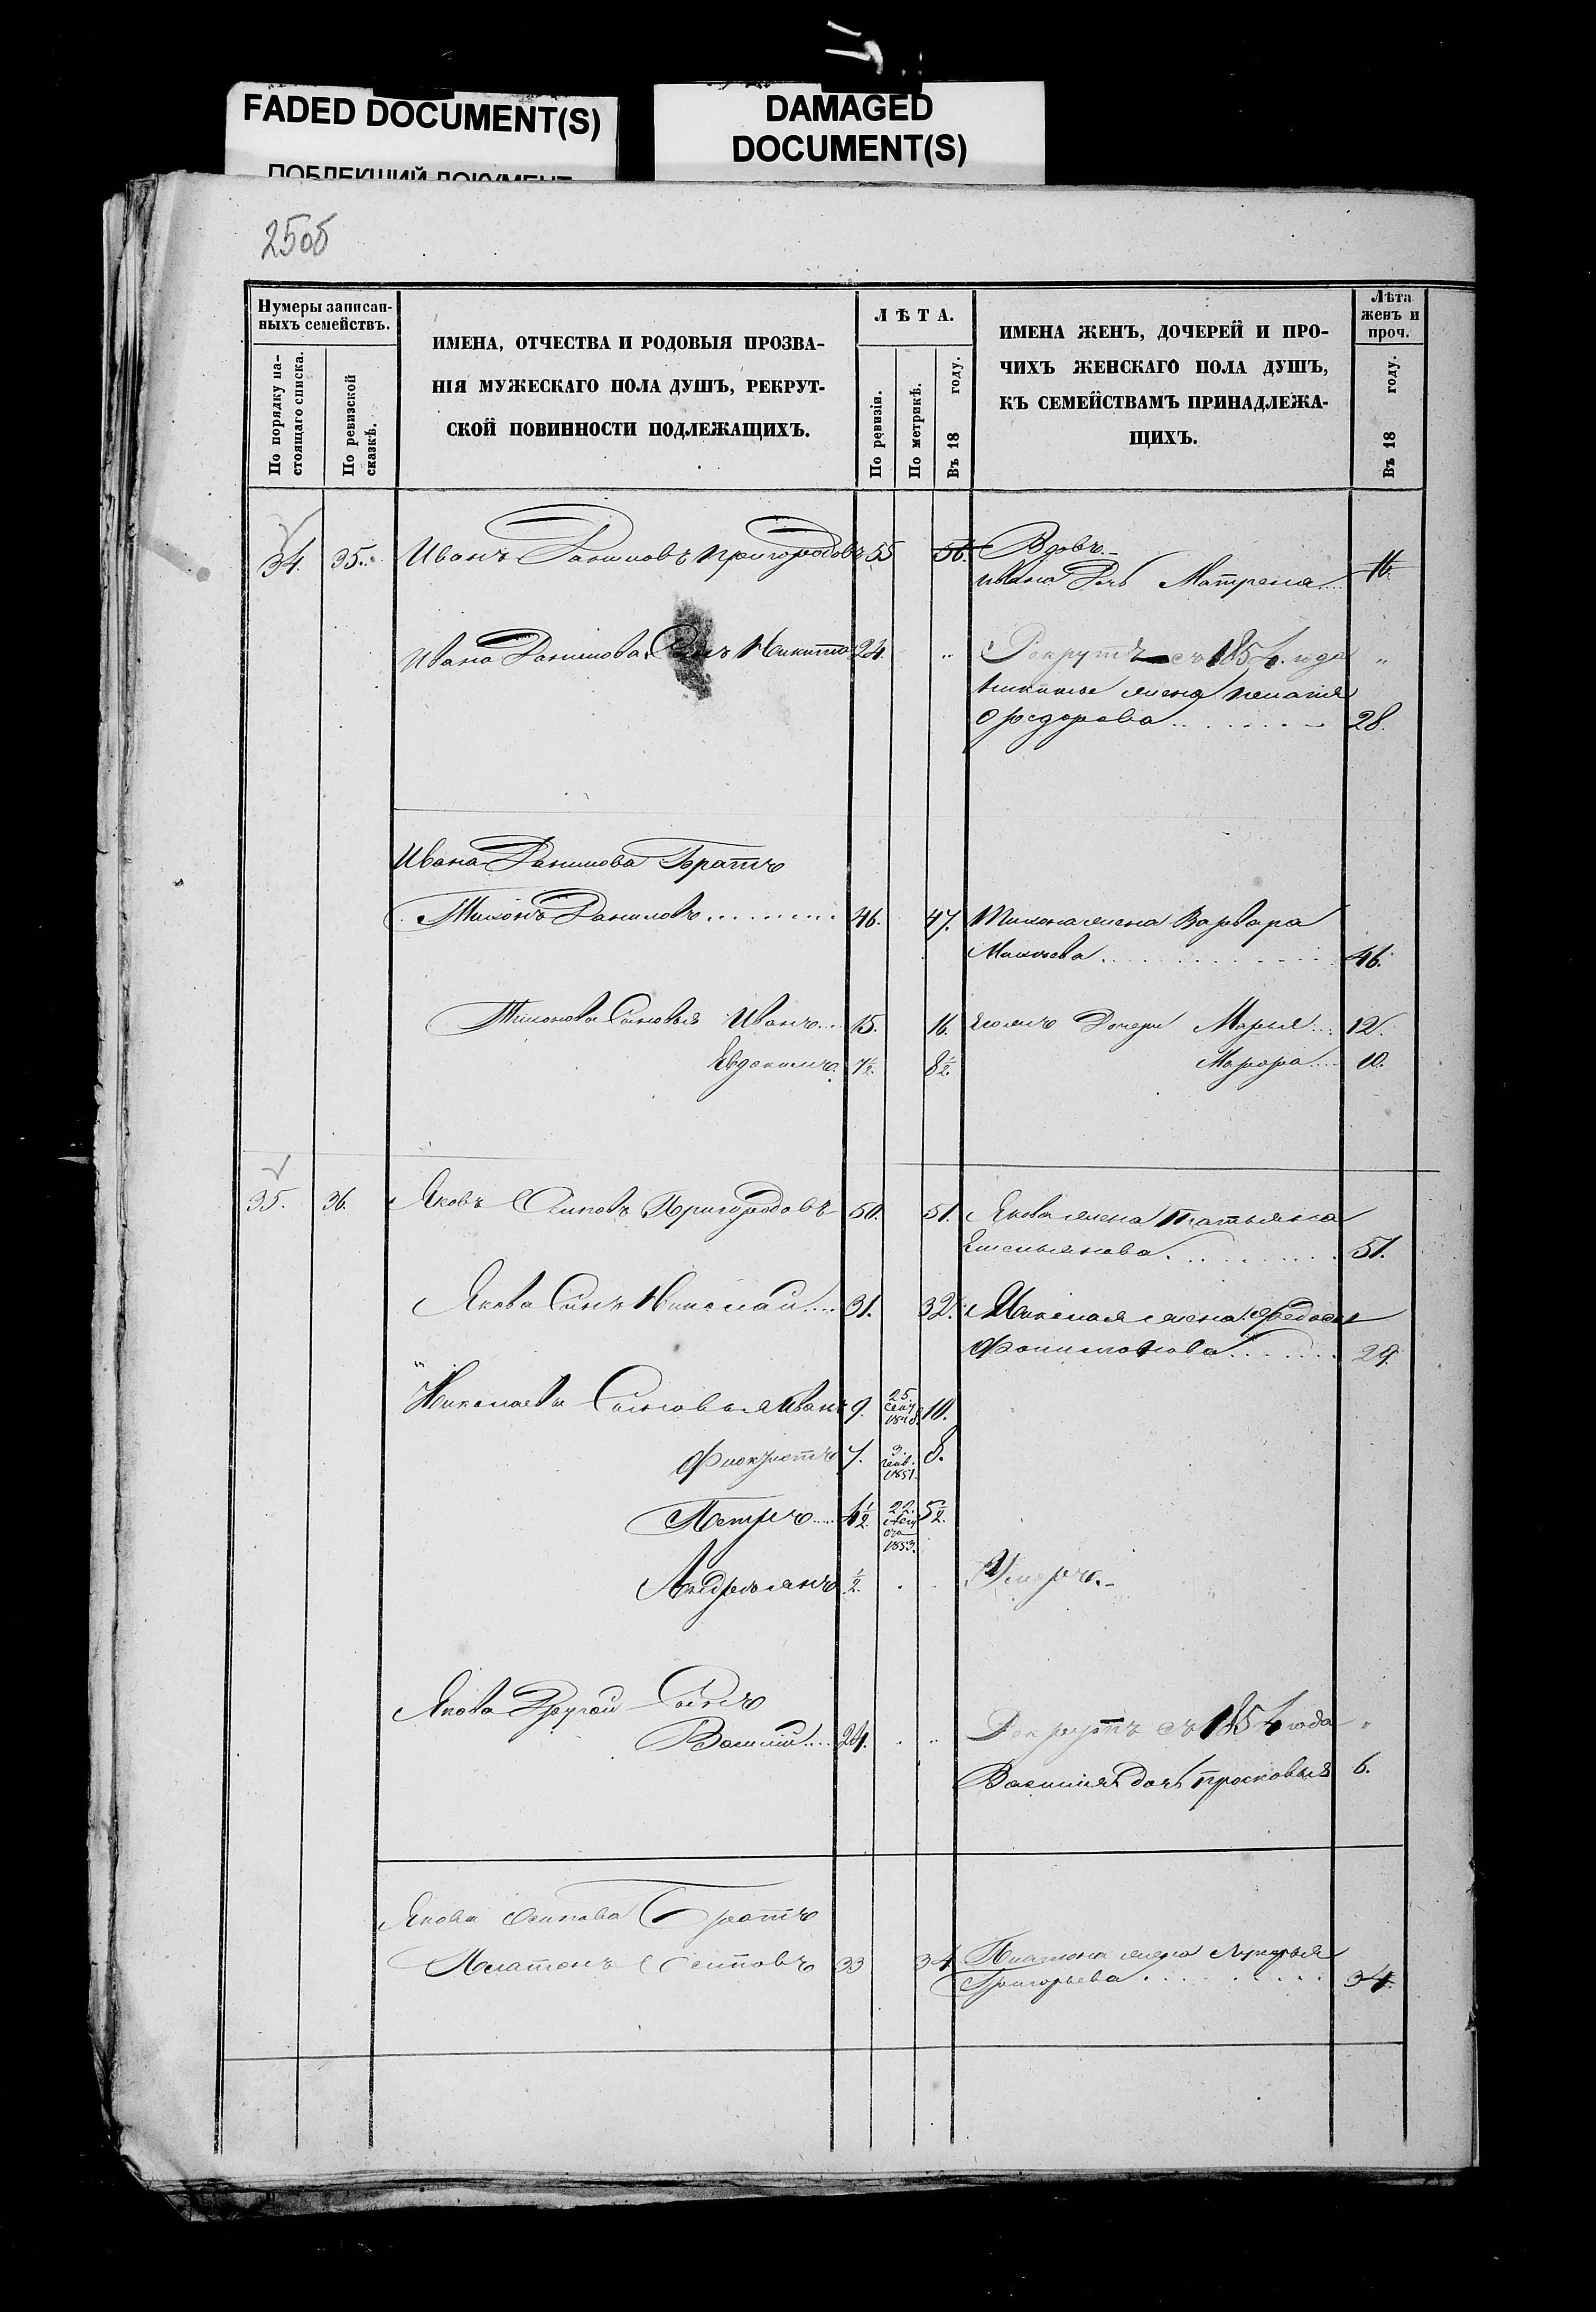 FADED DOCUMENT(S)
ПОБЛЕКШИЙ ДОКУМЕНТ
DAMAGED
DOCUMENT(S)
25об
Нумеры записан-
ныхъ семействъ.
По порядку на-
стоящаго списка.
По ревизской
сказкѣ.
ИМЕНА, ОТЧЕСТВА И РОДОВЫЯ ПРОЗВА-
НІЯ МУЖЕСКАГО ПОЛА ДУШЪ, РЕКРУТ-
СКОЙ ПОВИННОСТИ ПОДЛЕЖАЩИХЪ.
ЛѢТА.
По ревизіи.
По метрикѣ.
Въ 18 году.
ИМЕНА ЖЕНЪ, ДОЧЕРЕЙ И ПРО-
ЧИХЪ ЖЕНСКАГО ПОЛА ДУШЪ,
КЪ СЕМЕЙСТВАМЪ ПРИНАДЛЕЖА-
ЩИХЪ.
Лѣта
женъ и
проч.
Въ 18 году.
34. 35. Иванъ Даниловъ Пригородовъ 55 56. Вдовъ.
Ивана Дочь Матрена 16
Ивана Данилова Сынъ Никита 24. Рекрутъ съ 1854. года "
Никиты жена
Ѳедорова 28.
Ивана Данилова Братъ
Тихонъ Даниловъ 46. 47. Тихона жена Варвара
46.
Тихоновы Сыновья Иванъ 15. 16. Дочери Марья 12.
Евдокимъ 7½. 8½. Марѳа 10.
35. 36. Яковъ Осиповъ Пригородовъ 50. 51. Якова жена Татьяна
Емельянова 51.
Якова Сынъ Николай 31. 32. Николая жена Ѳедосья
Филимонова 29.
Николаевы Сыновья Иванъ 9. 25. 10.
7. 3. генв. 1851. 8.
Петръ 4½. 22. 1853. 5½.
Андреянъ ½. Умеръ.
Якова Другой Сынъ
Василій 24. Рекрутъ съ 1854 года "
Василія дочь Прасковья 6.
Якова Осипова Братъ
Платонъ Осиповъ 33 34 Платона жена Лукерья
Григорьева 34.